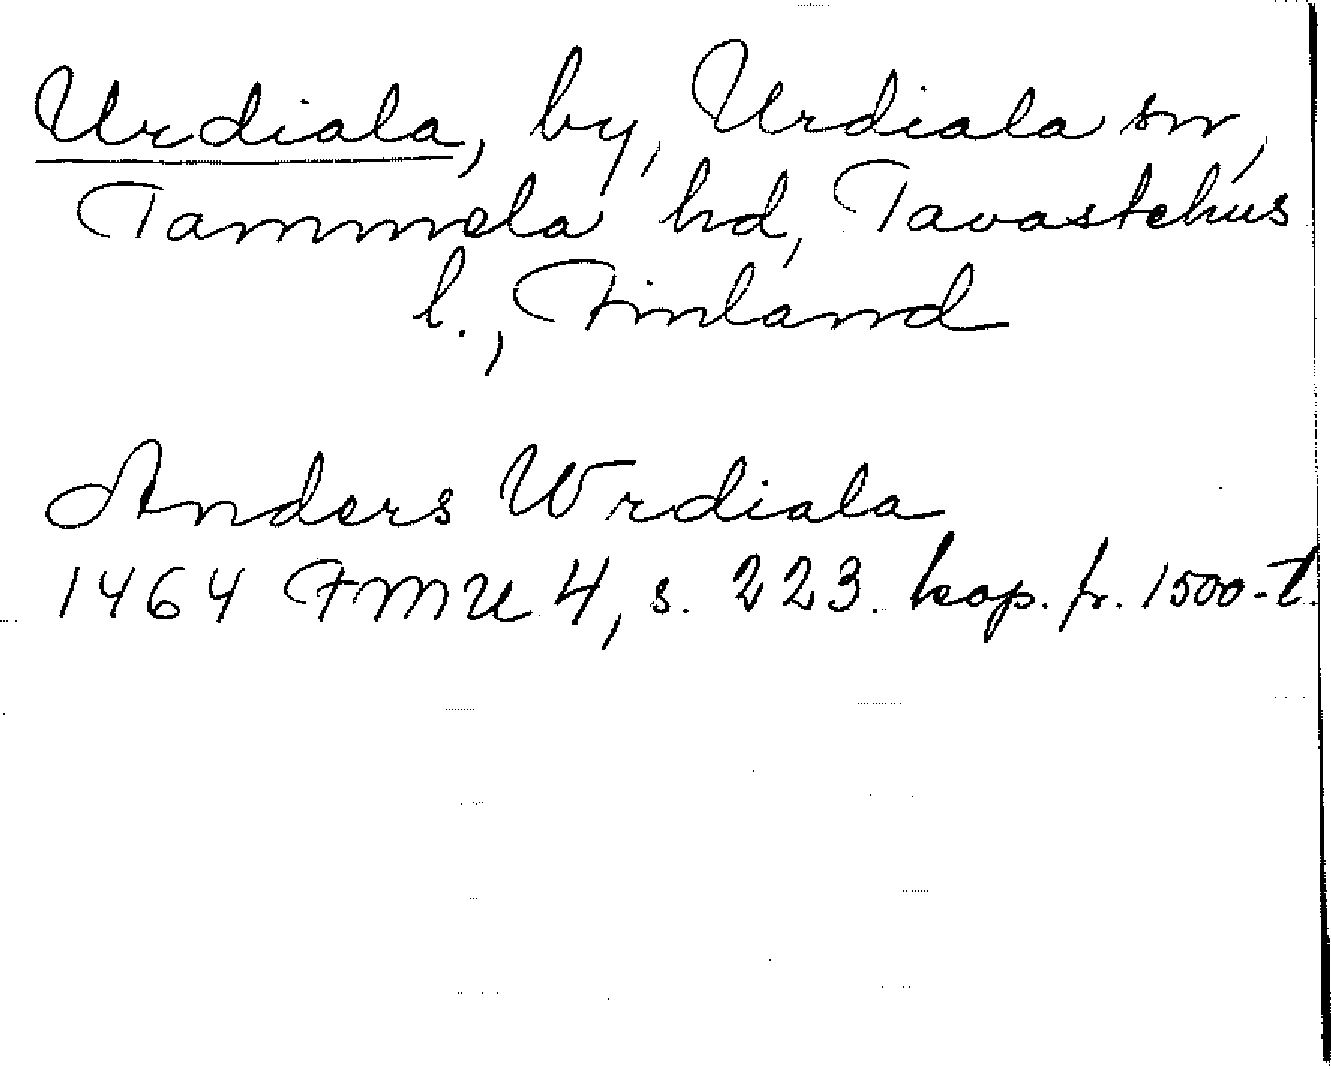 Urdiala, by, Urdiala sn,
Tammela hd, Tavastehus
l., Finland
Anders Wrdiala
1464 FMU 4, s. 223. kop. fr. 1500-t.